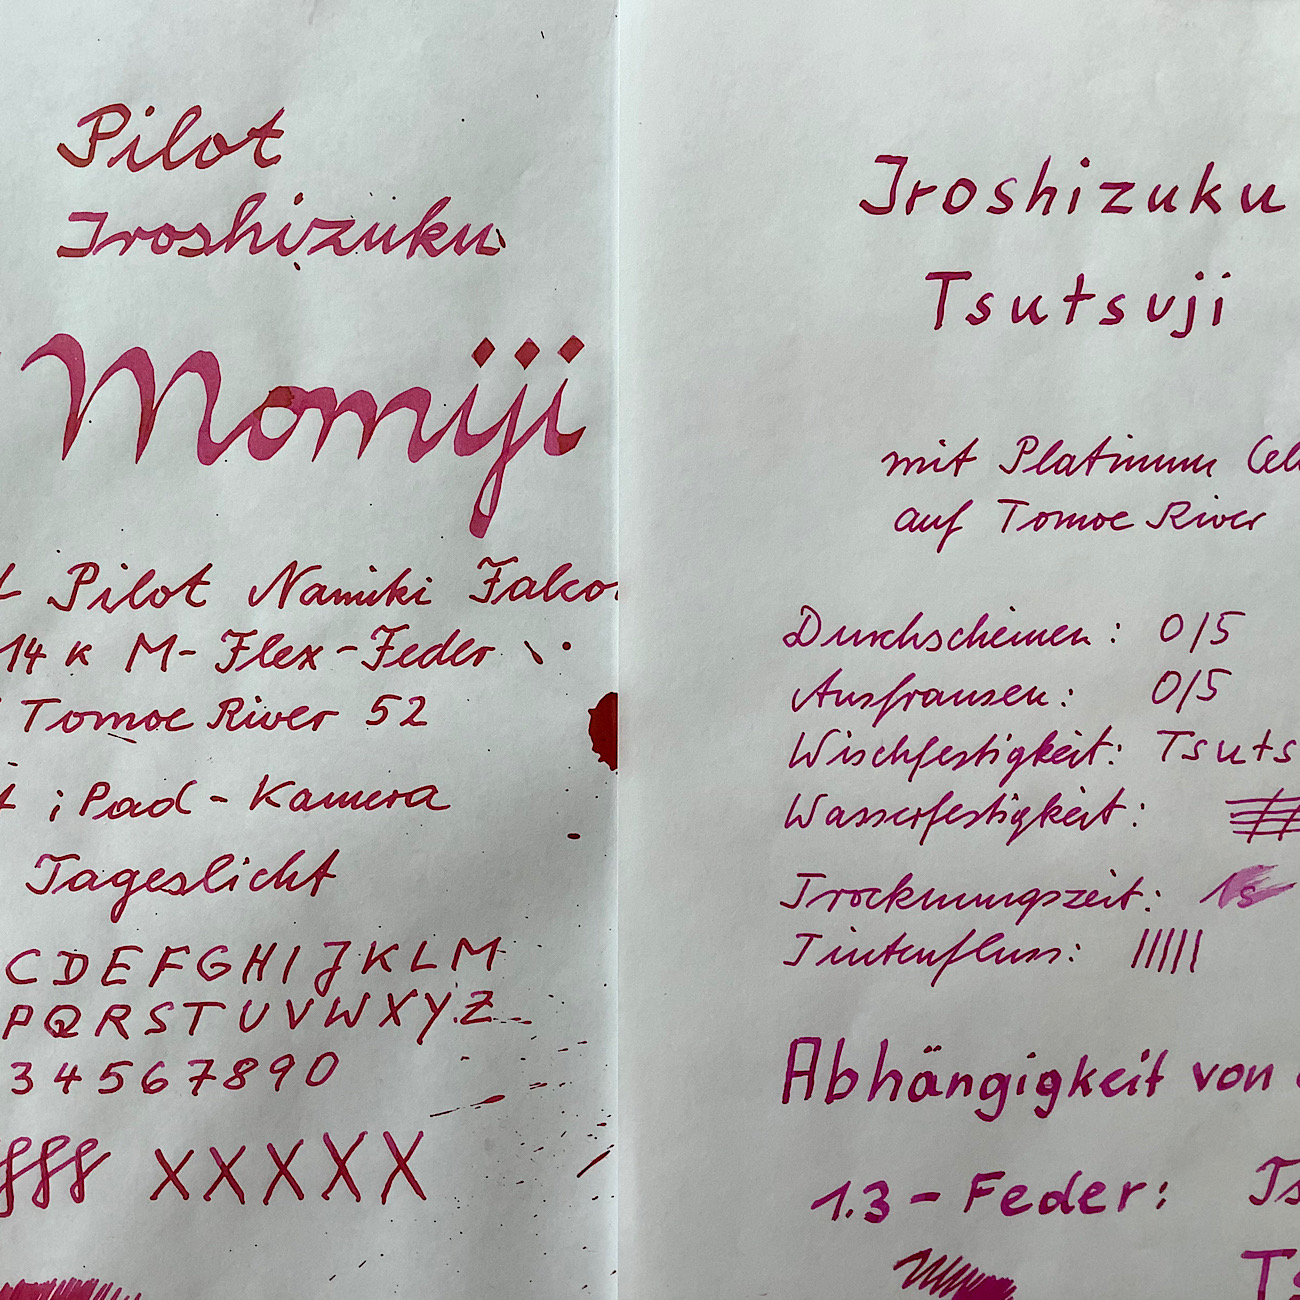 Pilot
Iroshizuku
Momiji
t Pilot Namiki Falco
14 K M-Flex-Feder
Tomoe River 52
t iPad-Kamera
Tageslicht
C D E F G H I J K L M
P Q R S T U V W X Y Z
3 4 5 6 7 8 9 0
fff XXXXX
Iroshizuku
Tsutsuji
mit Platinum Cel
auf Tomoe River
Durchscheinen: 0/5
Ausfransen: 0/5
Wischfestigkeit: Tsuts
Wasserfestigkeit:
Trocknungszeit: 1s
Tintenfluss: |||||
Abhängigkeit von
1.3-Feder: Ts
Ts